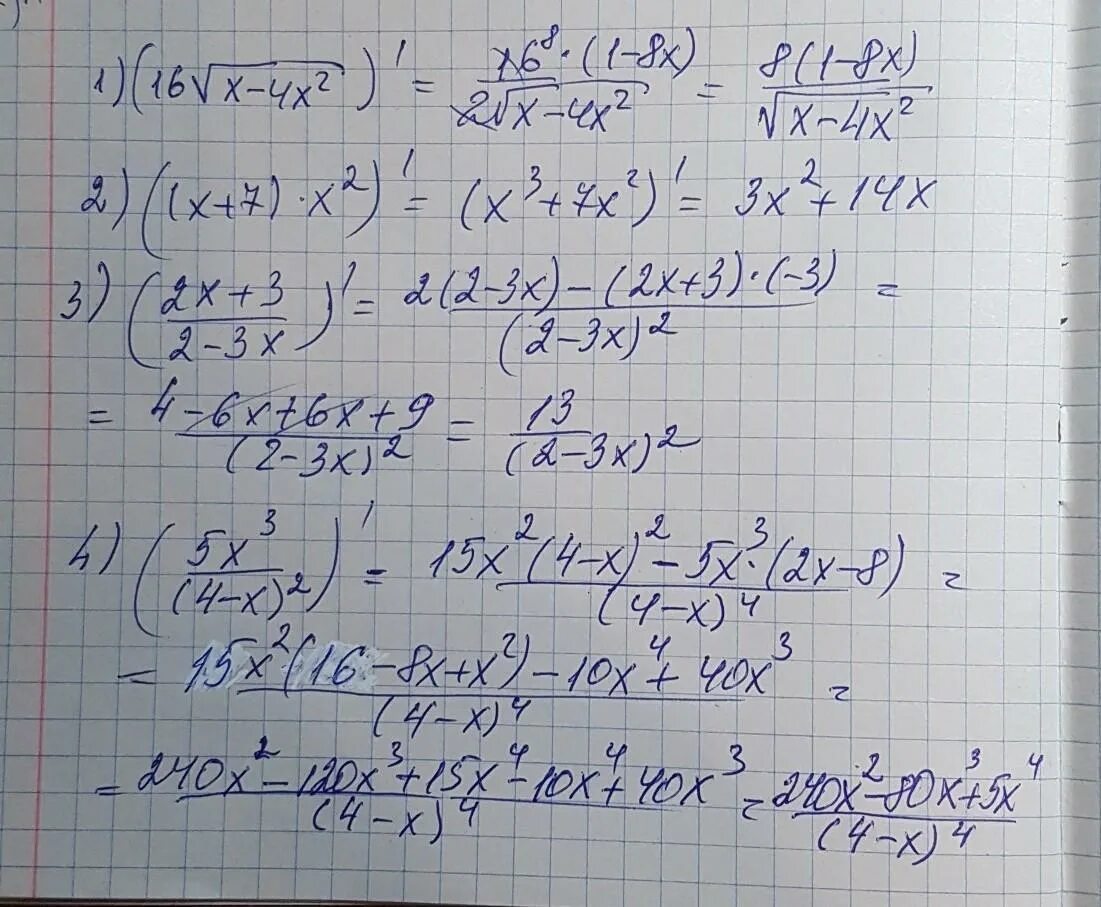 1) (16√(x-4x²))' = 16⁸·(1-8x) / 2√(x-4x²) = 8(1-8x) / √(x-4x²)
2) ((x+7)·x²)' = (x³+7x²)' = 3x²+14x
3) ((2x+3)/(2-3x))' = (2(2-3x)-(2x+3)·(-3)) / (2-3x)² =
= (4-6x+6x+9) / (2-3x)² = 13 / (2-3x)²
4) (5x³/(4-x)²)' = (15x²(4-x)²-5x³·(2x-8)) / (4-x)⁴ =
= (15x²(16-8x+x²)-10x⁴+40x³) / (4-x)⁴ =
= (240x²-120x³+15x⁴-10x⁴+40x³) / (4-x)⁴ = (240x²-80x³+5x⁴) / (4-x)⁴